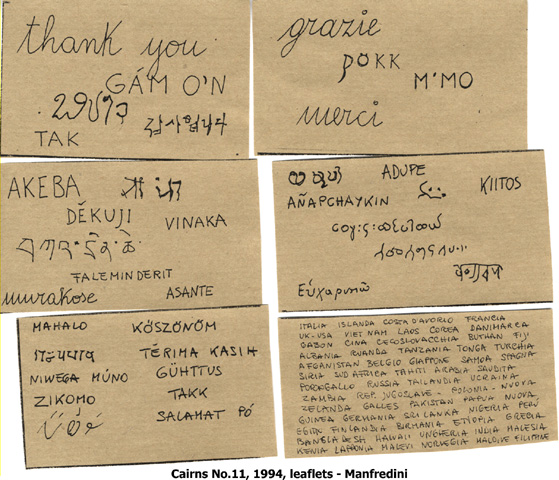 thank you
GÁM O'N
감사합니다
TAK
grazie
ÞÖKK
M'MO
merci
AKEBA
DĚKUJI
VINAKA
FALEMINDERIT
murakose
ASANTE
ADUPE
KIITOS
AÑAPCHAYKIN
MAHALO KÖSZÖNÖM
TĒRIMA KASIH
NIWEGA MÚNO GÜHTTUS
ZIKOMO TAKK
SALAMAT PÓ
ITALIA ISLANDA COSTA D'AVORIO FRANCIA
UK-USA VIET NAM LAOS COREA DANIMARCA
GABON CINA CECOSLOVACCHIA BUTHAN FIJI
ALBANIA RUANDA TANZANIA TONGA TURCHIA
AFGANISTAN BELGIO GIAPPONE SAMOA SPAGNA
SIRIA SUD AFRICA TAHITI ARABIA SAUDITA
PORTOGALLO RUSSIA TAILANDIA UCRAINA
ZAMBIA REP. JUGOSLAVE - POLONIA - NUOVA
ZELANDA GALLES PAKISTAN PAPUA NUOVA
GUINEA GERMANIA SRI LANKA NIGERIA PERÙ
EGITTO FINLANDIA BIRMANIA ETIOPIA GRECIA
BANGLADESH HAWAII UNGHERIA INDIA MALESIA
KENIA LAPPONIA MALEVI NORVEGIA MALDIVE FILIPPINE
Cairns No.11, 1994, leaflets - Manfredini